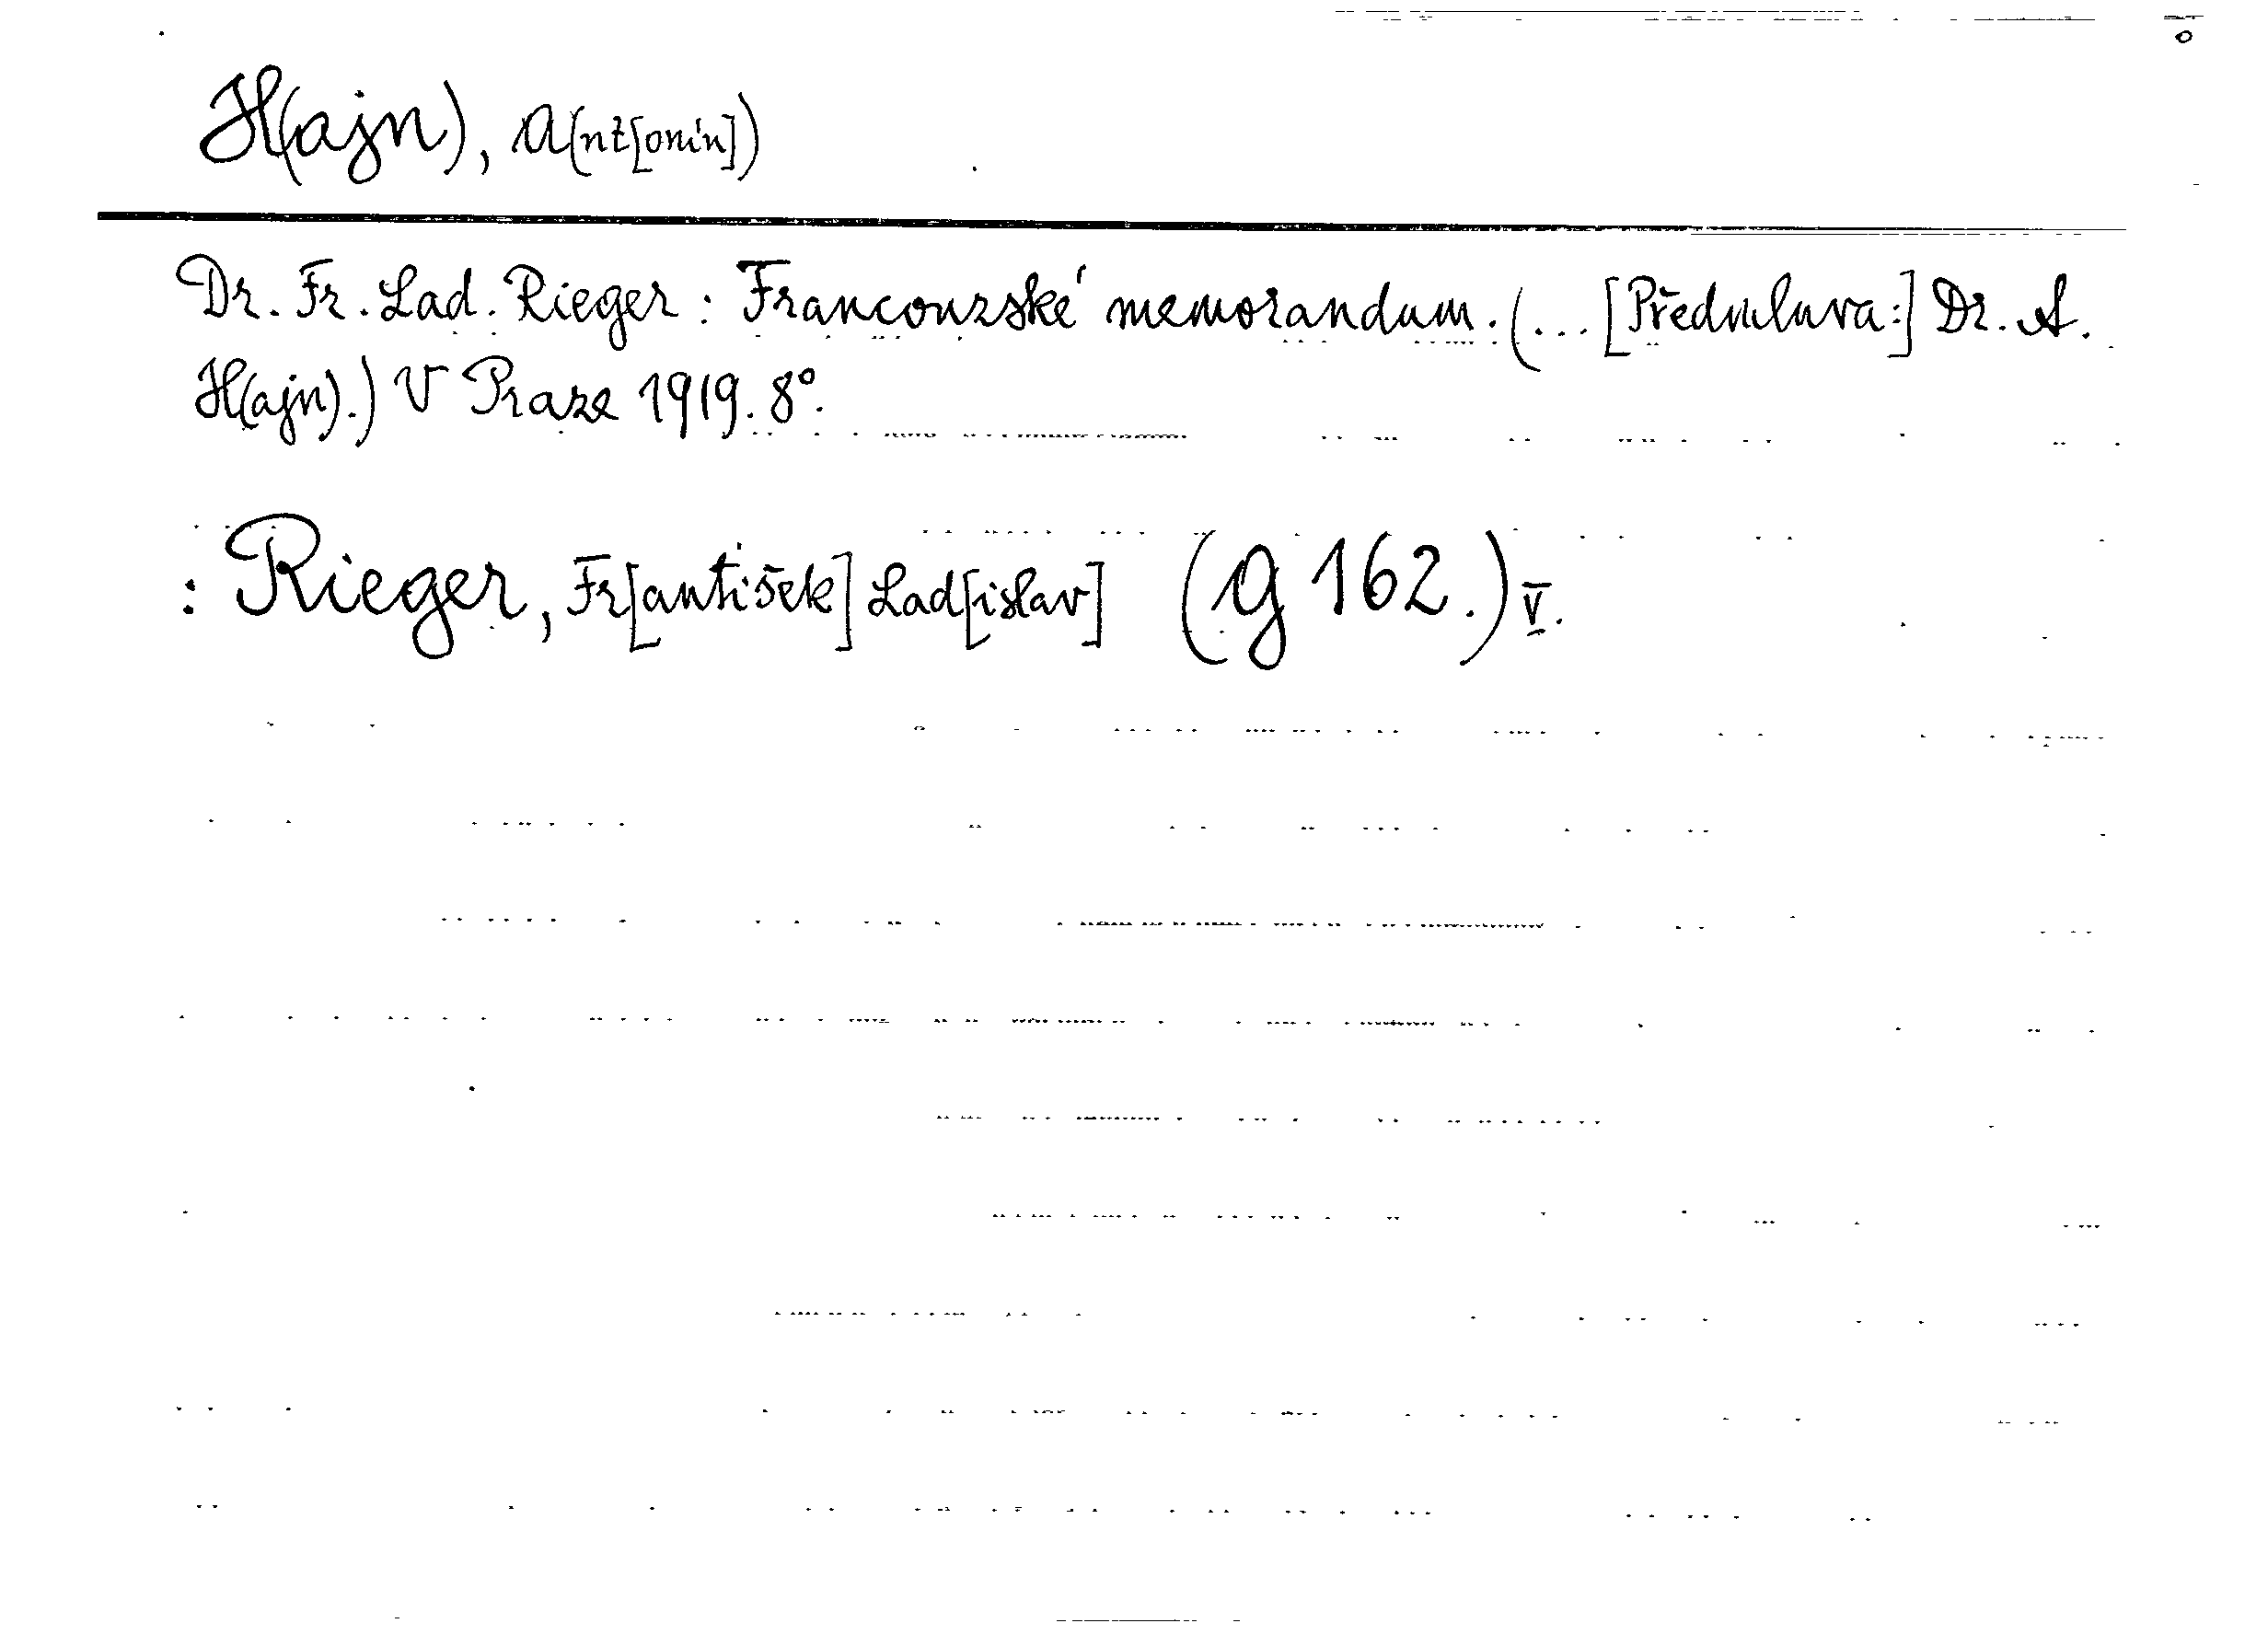 H(ajn), A(nt[onín])
Dr. Fr. Lad. Rieger: Francouzské memorandum. (... [Předmluva:] Dr. A.
H(ajn).) V Praze 1919. 8°.
: Rieger, Fr[antišek] Lad[islav] (g 162.) V.